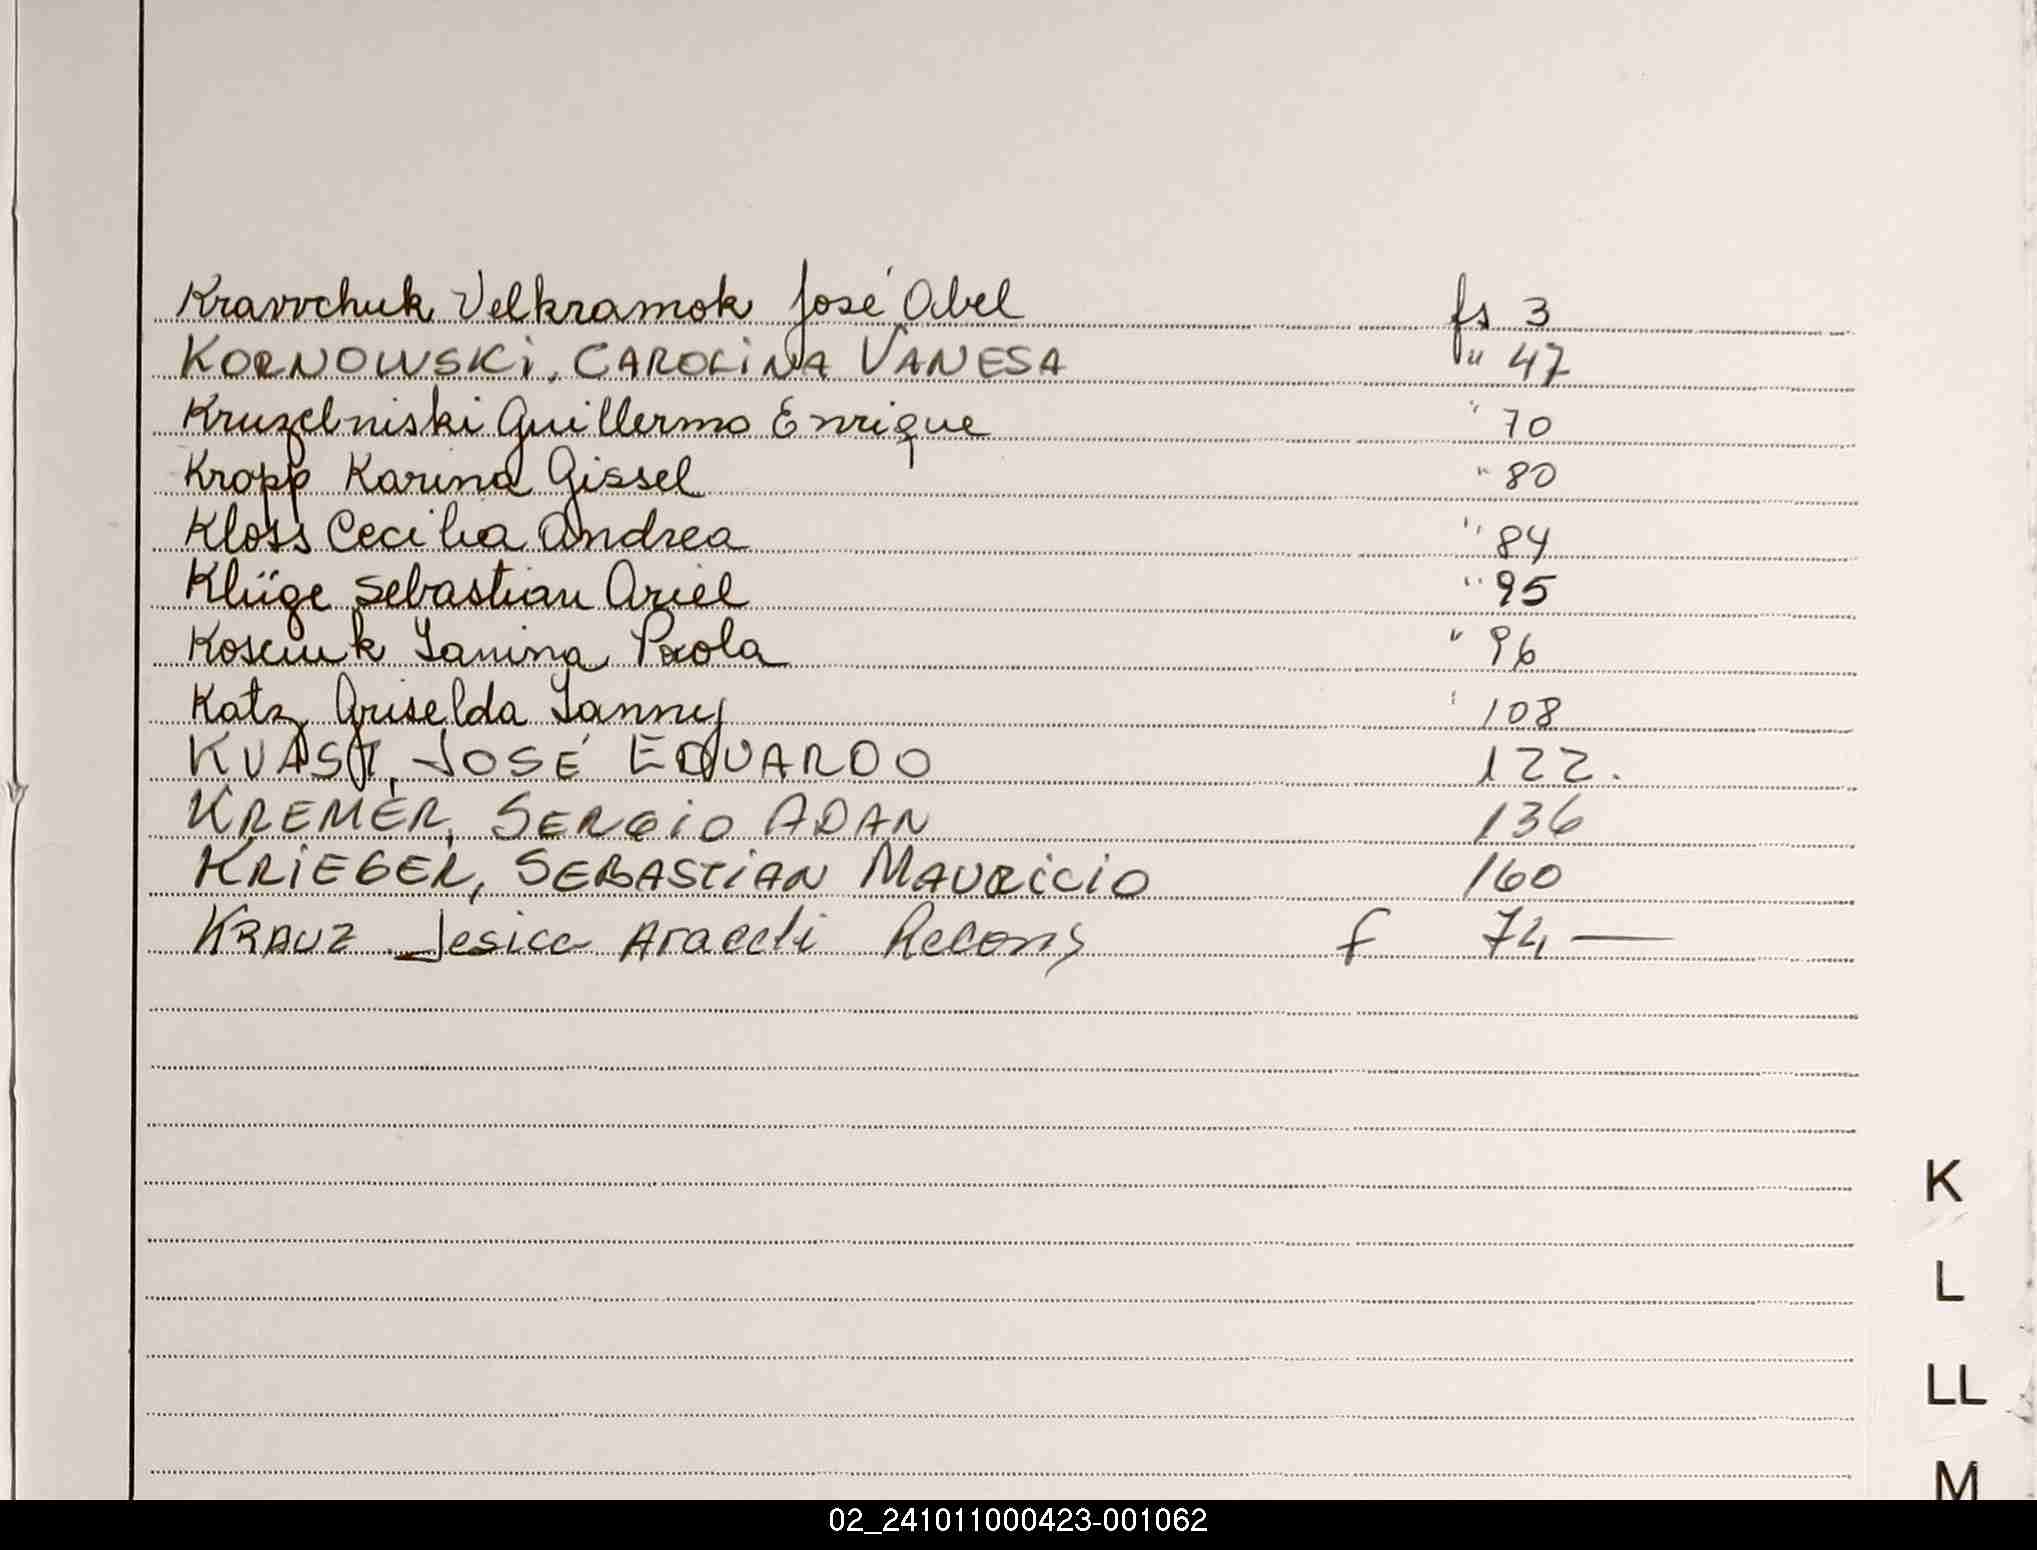 Kravvchuk Velkramok José Abel fs 3
KORNOWSKi, CAROLiNA VANESA " 47
Kruzelniski Guillermo Enrique " 70
Kropp Karina Gissel " 80
Kloss Cecilia Andrea " 84
Klüge Sebastian Ariel " 95
Kosciuk Yanina Paola " 96
Katz Griselda Yanny " 108
KVAST, JOSÉ EDUARDO 122.
KREMER, SERGiO ADAN 136
KRiEGER, SEBASTiAN MAURiCiO 160
KRAUZ Jesica Araceli f 74 —
K
L
LL
M
02_241011000423-001062